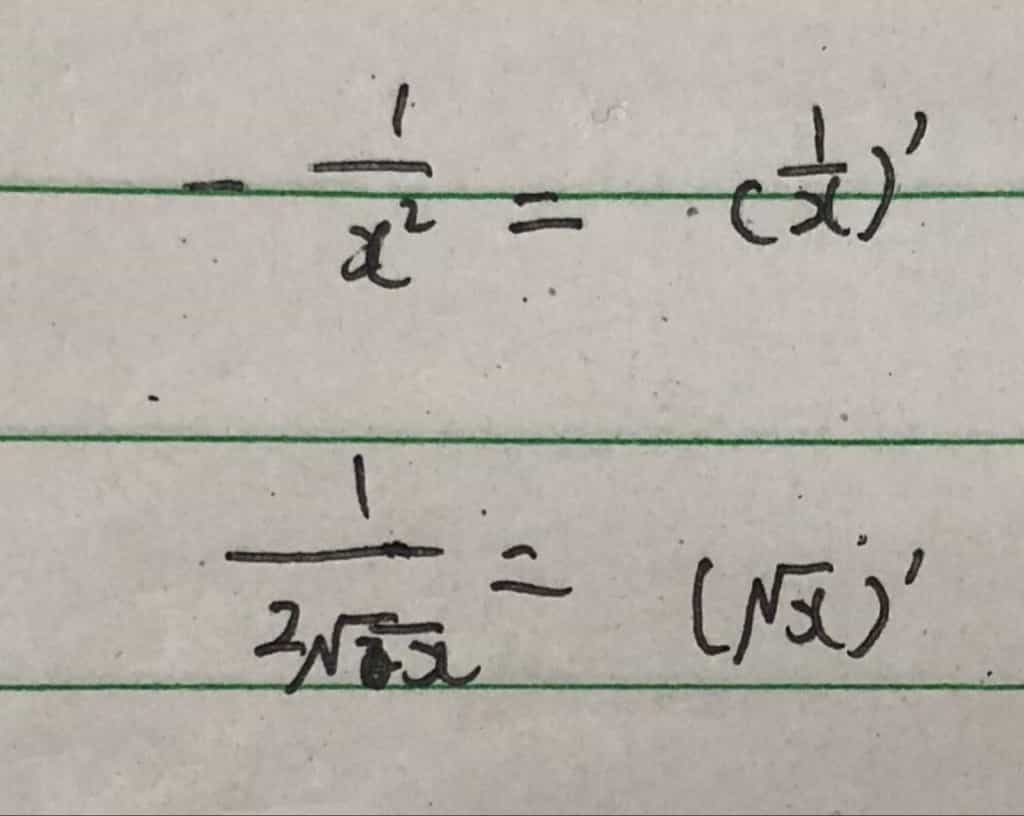 - 1/x² = (1/x)'
1/(2√x) = (√x)'